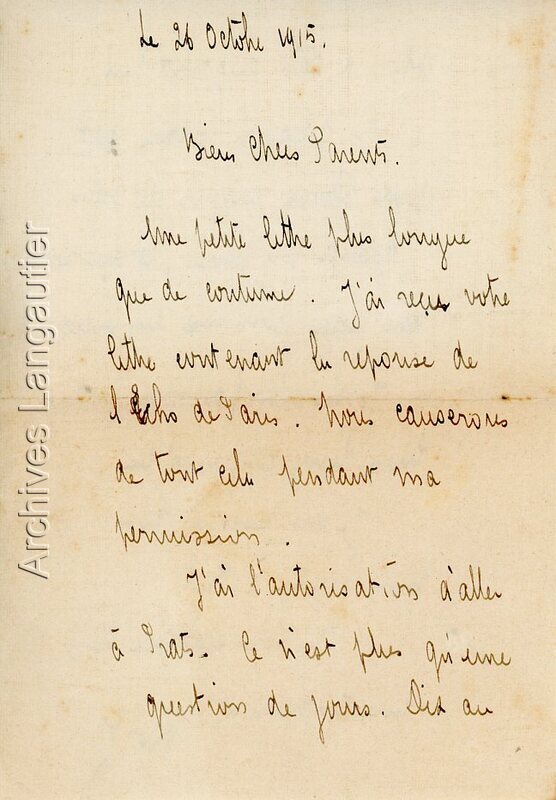 Le 26 Octobre 1915.
Biens chers Parents.
Une petite lettre plus longue
que de coutume. J'ai reçu votre
lettre contenant la reponse de
l'Echo de Paris. Nous causerons
de tout cela pendant ma
permission.
J'ai l'autorisation d'aller
à Prats. Ce n'est plus qu'une
question de jours. Dix au
Archives Langautier